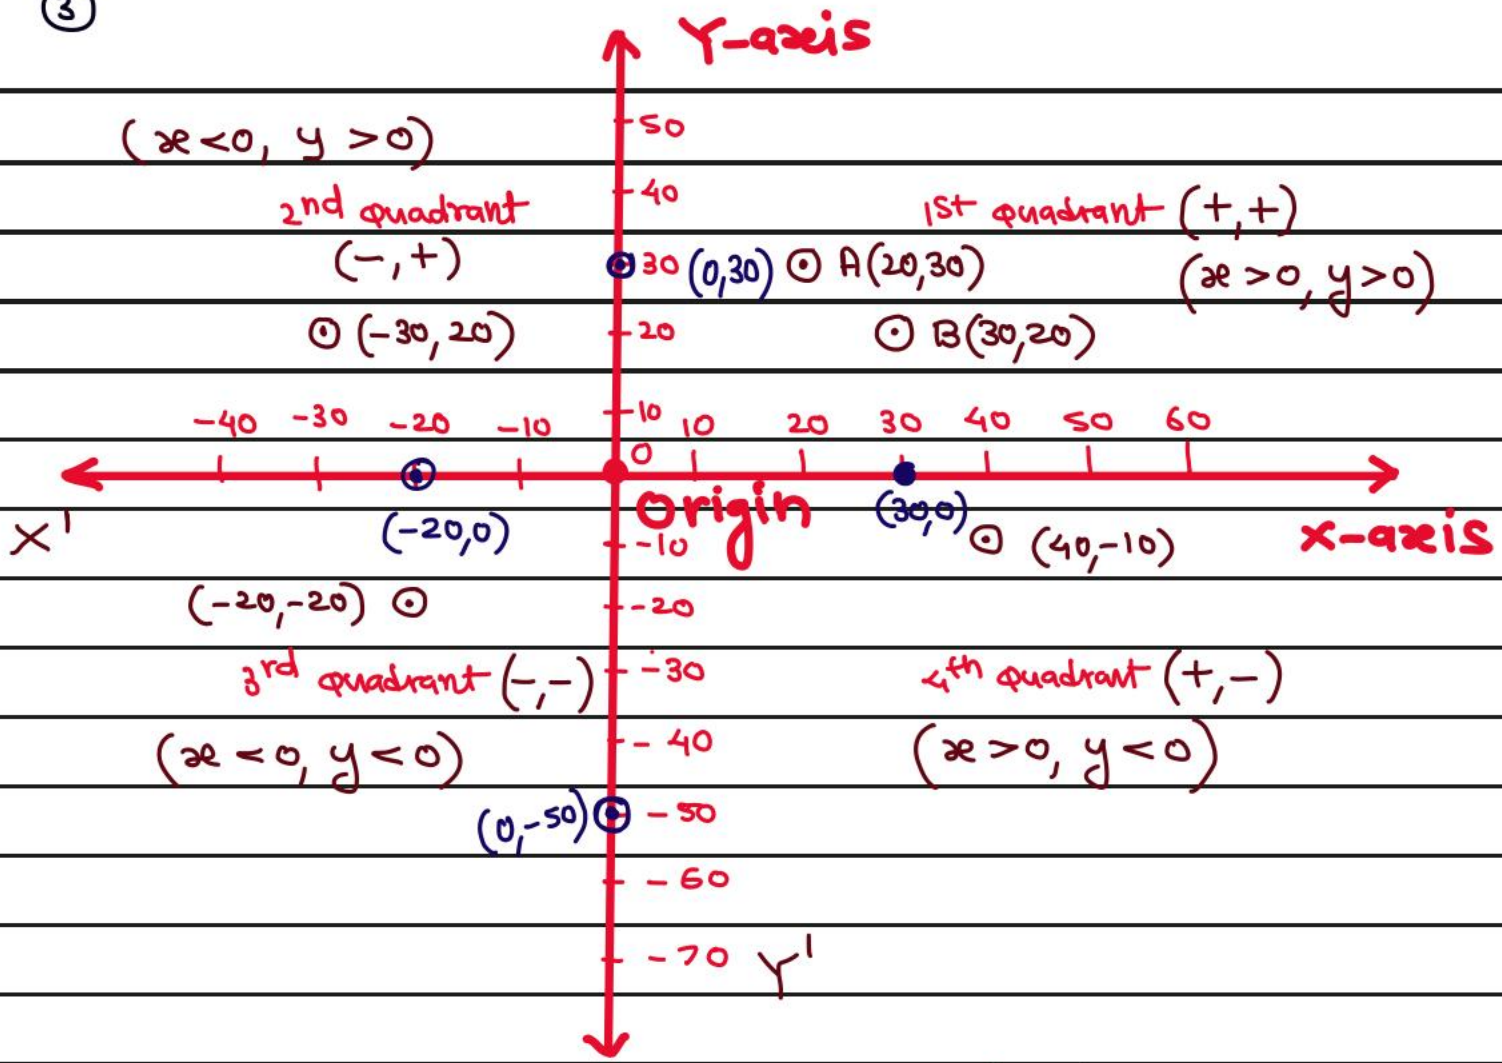 3
Y-axis
50
(x<0, y>0)
40
2nd quadrant
1st quadrant (+,+)
(-,+)
30 (0,30) A(20,30)
(x>0, y>0)
(-30,20)
20
B(30,20)
-40 -30 -20 -10 10 10 20 30 40 50 60
0
Origin
(30,0)
X'
(-20,0)
-10
(40,-10)
X-axis
(-20,-20)
-20
3rd quadrant (-,-)
-30
4th quadrant (+,-)
(x<0, y<0)
-40
(x>0, y<0)
(0,-50)
-50
-60
-70 Y'